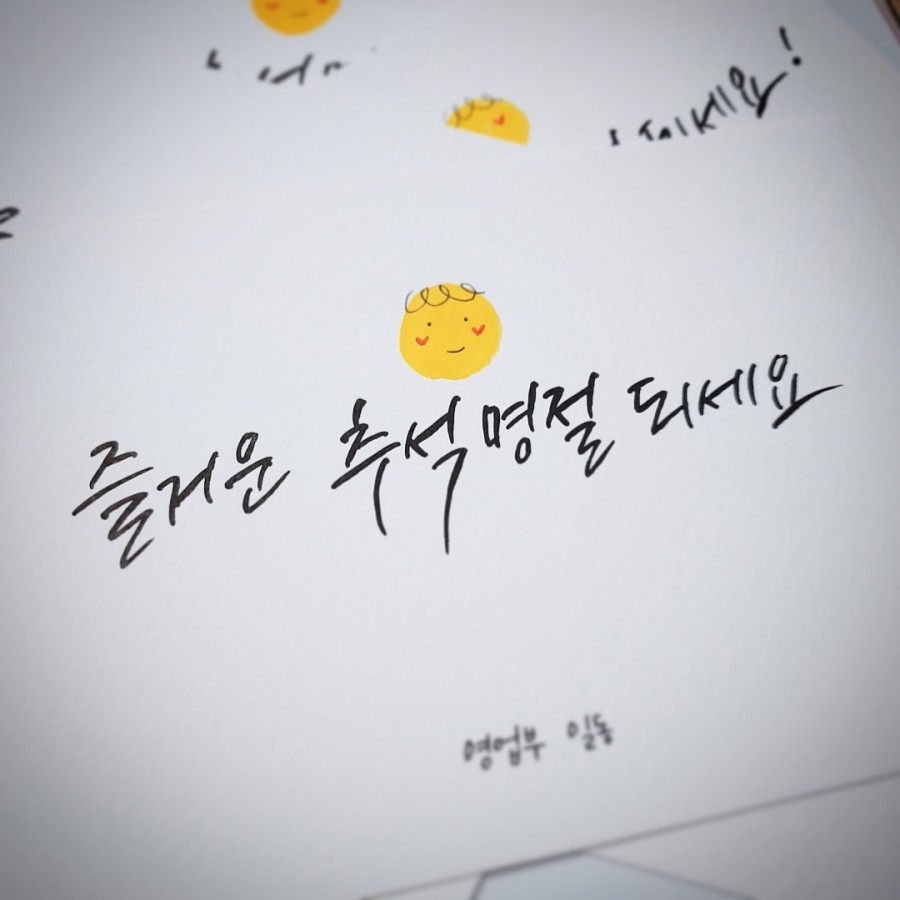 즐거운 추석 명절 되세요
영업부 일동